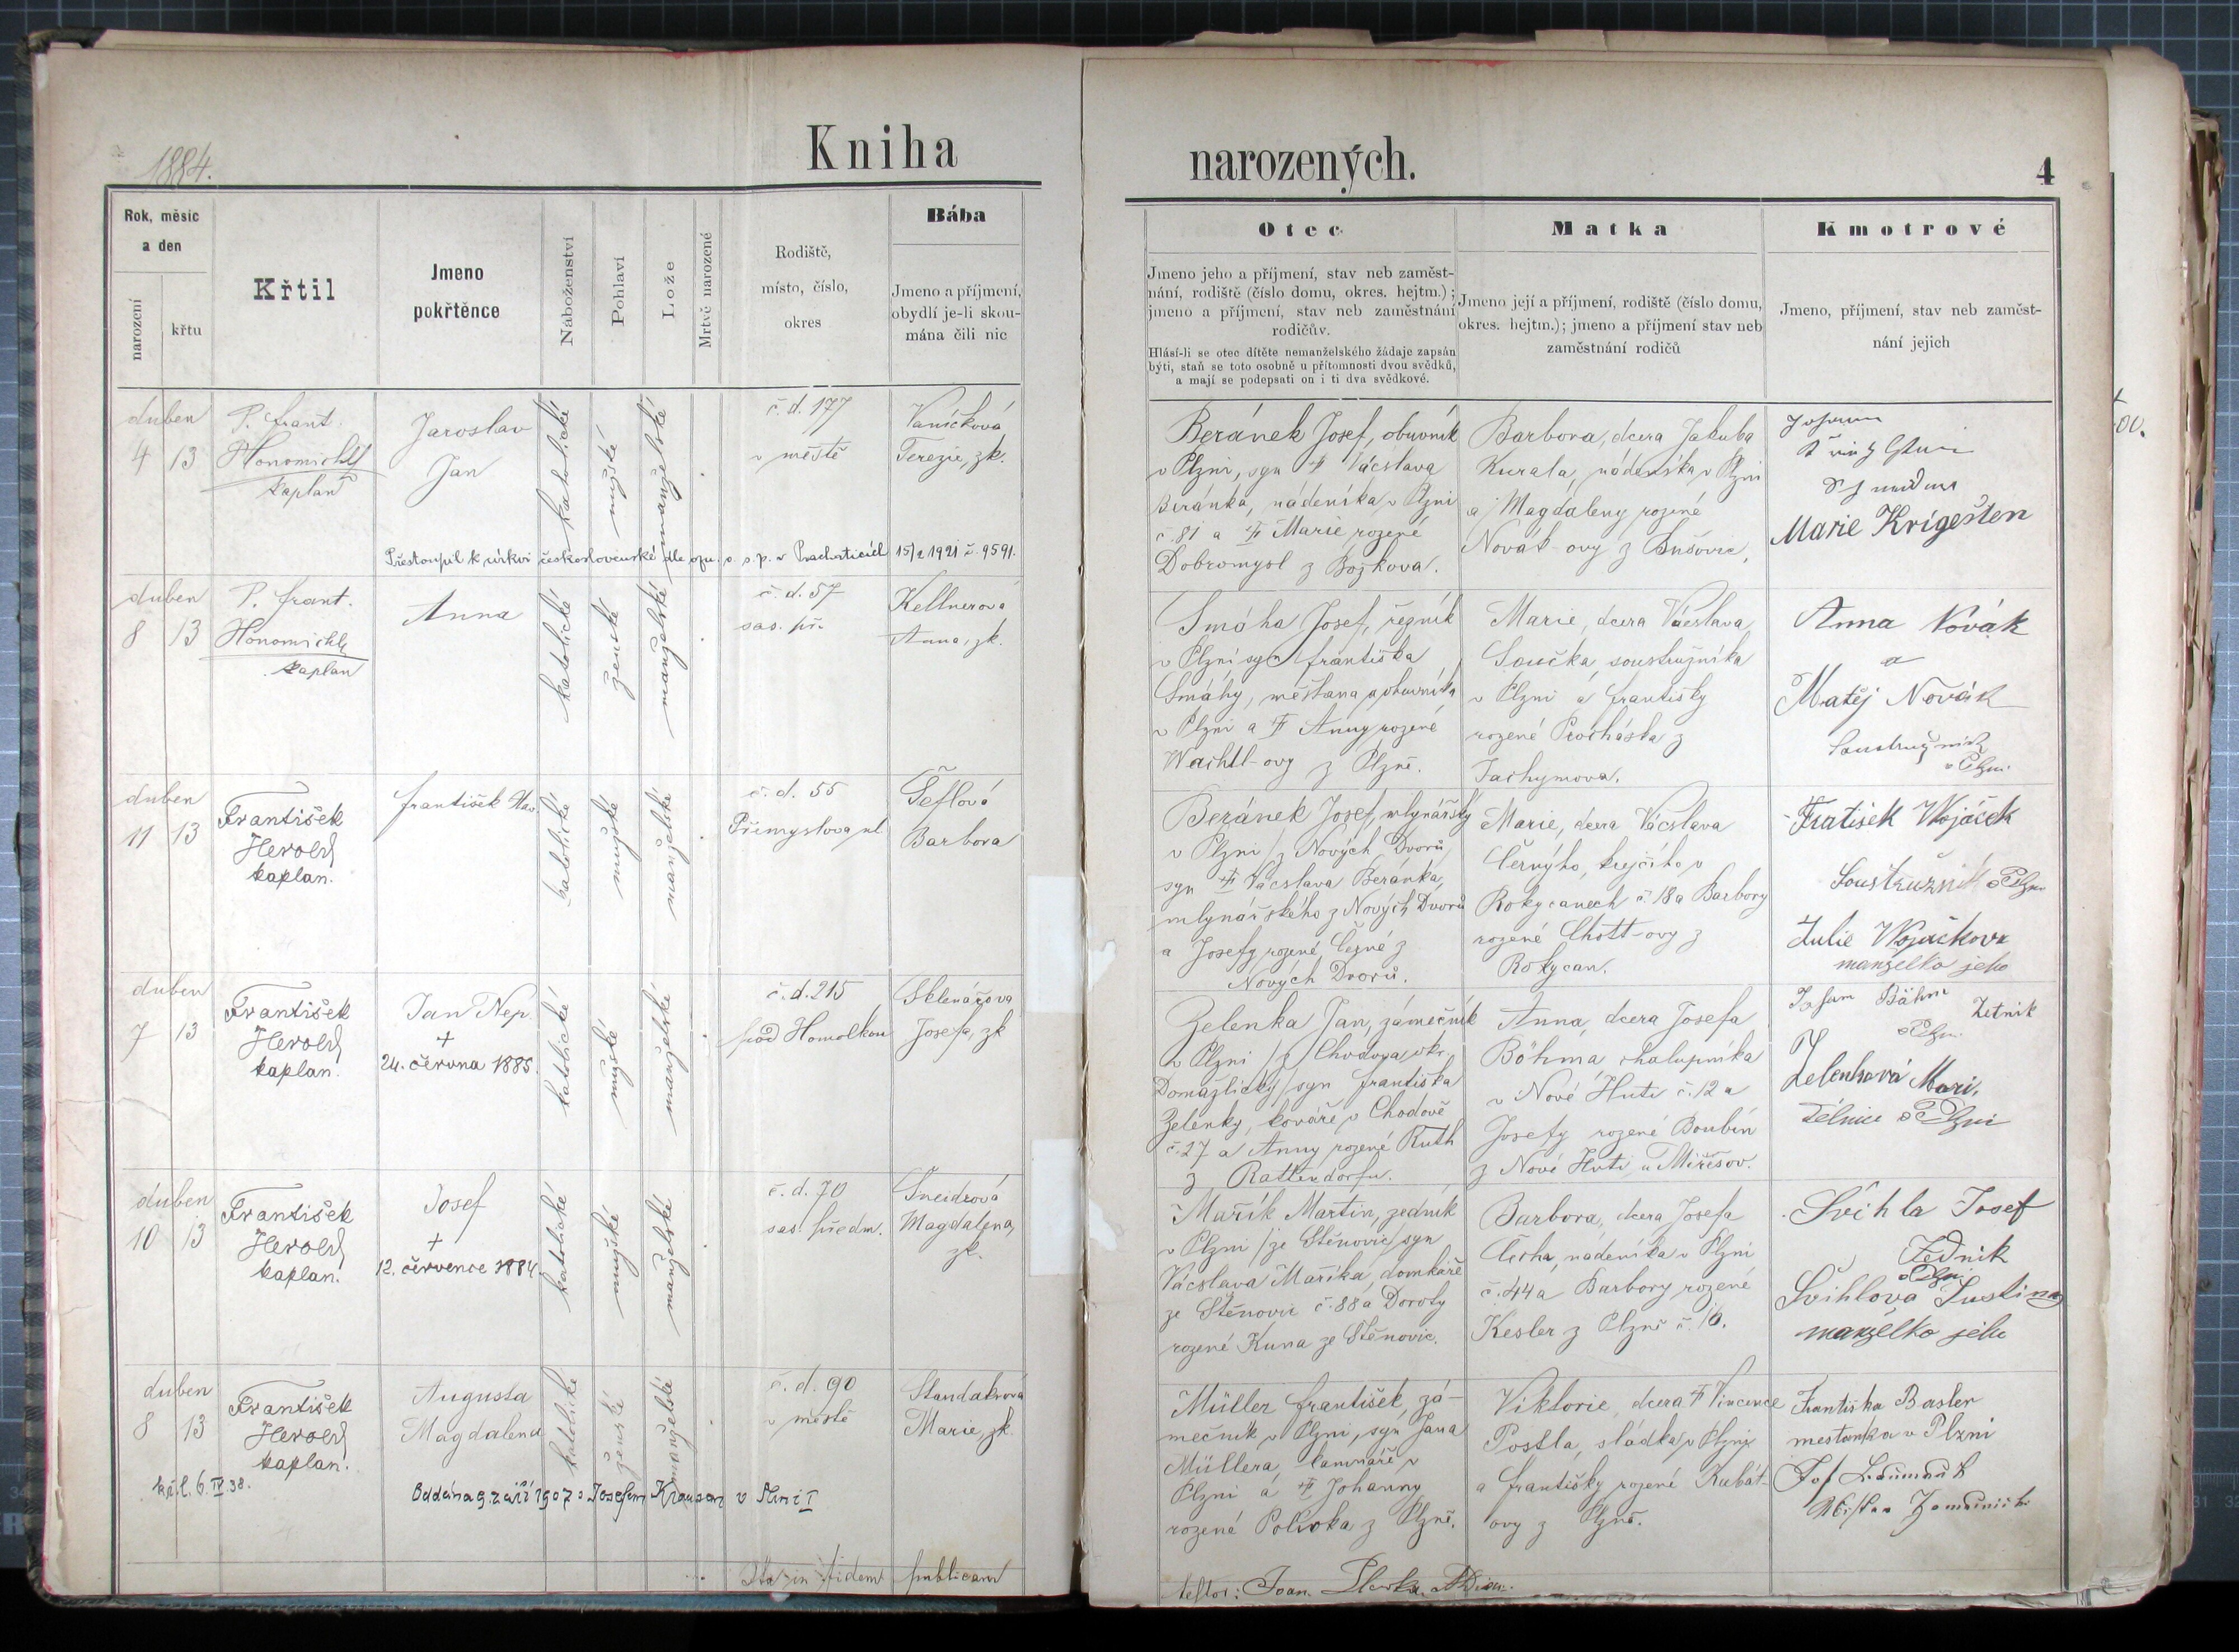 1884.
Kniha
narozených.
4
Rok, měsíc
a den
narození
křtu
Křtil
Jmeno
pokřtěnce
Náboženství
Pohlaví
Lože
Mrtvě narozené
Rodiště,
místo, číslo,
okres
Bába
Jmeno a příjmení,
obydlí je-li skou-
mána čili nic
Otec
Jmeno jeho a příjmení, stav neb zaměst-
nání, rodiště (číslo domu, okres. hejtm.);
jmeno a příjmení, stav neb zaměstnání
rodičův.
Hlásí-li se otec dítěte nemanželského žádaje zapsán
býti, staň se toto osobně u přítomnosti dvou svědků,
a mají se podepsati on i ti dva svědkové.
Matka
Jmeno její a příjmení, rodiště (číslo domu,
okres. hejtm.); jmeno a příjmení stav neb
zaměstnání rodičů
Kmotrové
Jmeno, příjmení, stav neb zaměst-
nání jejich
duben
4 13
P. Frant.
Honomichl
kaplan
Jaroslav
Jan
katolické
mužské
manželské
č. d. 177
v městě
Vaníčková
Terezie, zk.
Přestoupil k církvi československé dle ozn. o. s. p. v Prachaticích 15/2 1921 č. 9591.
Beránek Josef, obuvník
v Plzni, syn Vácslava
Beránka, nádeníka v Plzni
č. 81 a Marie rozené
Dobromysl z Božkova.
Barbora, dcera Jakuba
Kurala, nádeníka v Plzni
a Magdaleny rozené
Novák-ovy z Bušovic,
Marie Krigešten
duben
8 13
P. Frant.
Honomichl
kaplan
Anna
katolické
ženské
manželské
č. d. 57
sas. př.
Kellnerová
Anna, zk.
Smáha Josef, řezník
v Plzni syn Františka
Smáhy, měšťana a obuvníka
v Plzni a Anny rozené
Wachtl-ovy z Plzně.
Marie, dcera Vácslava
Součka, soustružníka
v Plzni a Františky
rozené Procháska z
Jachymova.
Anna Novák
a
Matěj Novák
Soustružník
v Plzni
duben
11 13
František
Herold
kaplan.
František
katolické
mužské
manželské
č. d. 55
Přemyslova ul
Šeflová
Barbora
Beránek Josef, mlynářský
v Plzni /z Nových Dvorů
syn Vácslava Beránka,
mlynářského z Nových Dvorů
a Josefy rozené Černé z
Nových Dvorů.
Marie, dcera Vácslava
Černýho, krejčího v
Rokycanech č. 18 a Barbory
rozené Chott-ovy z
Rokycan.
Fratisek Wojáček
Soustružník v Plzni
Julie Wojáčkova
manželka jeho
duben
7 13
František
Herold
kaplan.
Jan Nep.
+
24. června 1885.
katolické
mužské
manželské
č. d. 215
pod Homolkou
Sklenářova
Josefa, zk
Zelenka Jan, zámečník
v Plzni /z Chodova okr.
Domažlický/ syn Františka
Zelenky, kováře v Chodově
č. 27 a Anny rozené Ruth
z Rattendorfu.
Anna, dcera Josefa
Böhma, chalupníka
v Nové Huti č. 12 a
Josefy rozené Boubín
z Nové Huti u Mirešov.
Böhm
v Plzni
Zelenková Mari,
v Plzni
duben
10 13
František
Herold
kaplan.
Josef
+
12. července 1884
katolické
mužské
manželské
č. d. 70
sas. předm.
Šneidrová
Magdalena,
zk.
Mařík Martin, zedník
v Plzni /ze Štěnovic/ syn
Vácslava Maříka, domkáře
ze Štěnovic č. 88 a Doroty
rozené Kuna ze Štěnovic.
Barbora, dcera Josefa
Čecha, nádeníka v Plzni
č. 44 a Barbory rozené
Kesler z Plzně č. 16.
Švihla Josef
Zedník
v Plzni
Švihlova Justina
manželka jeho
duben
8 13
František
Herold
kaplan.
Augusta
Magdalena
katolické
ženské
manželské
č. d. 90
v městě
Standahrová
Marie, zk.
kř. l. 6. IV. 38.
Oddána 9. září 1907 s Josefem Krausem v Plzni I
Müller František, zá-
mečník v Plzni, syn Jana
Müllera lamnáře v
Plzni a Johanny
rozené Polívka z Plzně.
Viktorie, dcera Vincence
Postla, sládka v Plzni
a Františky rozené Kubát-
ovy z Plzně.
Františka Basler
mestanka v Plzni
Ita in fidem publicam
testor: Joan.